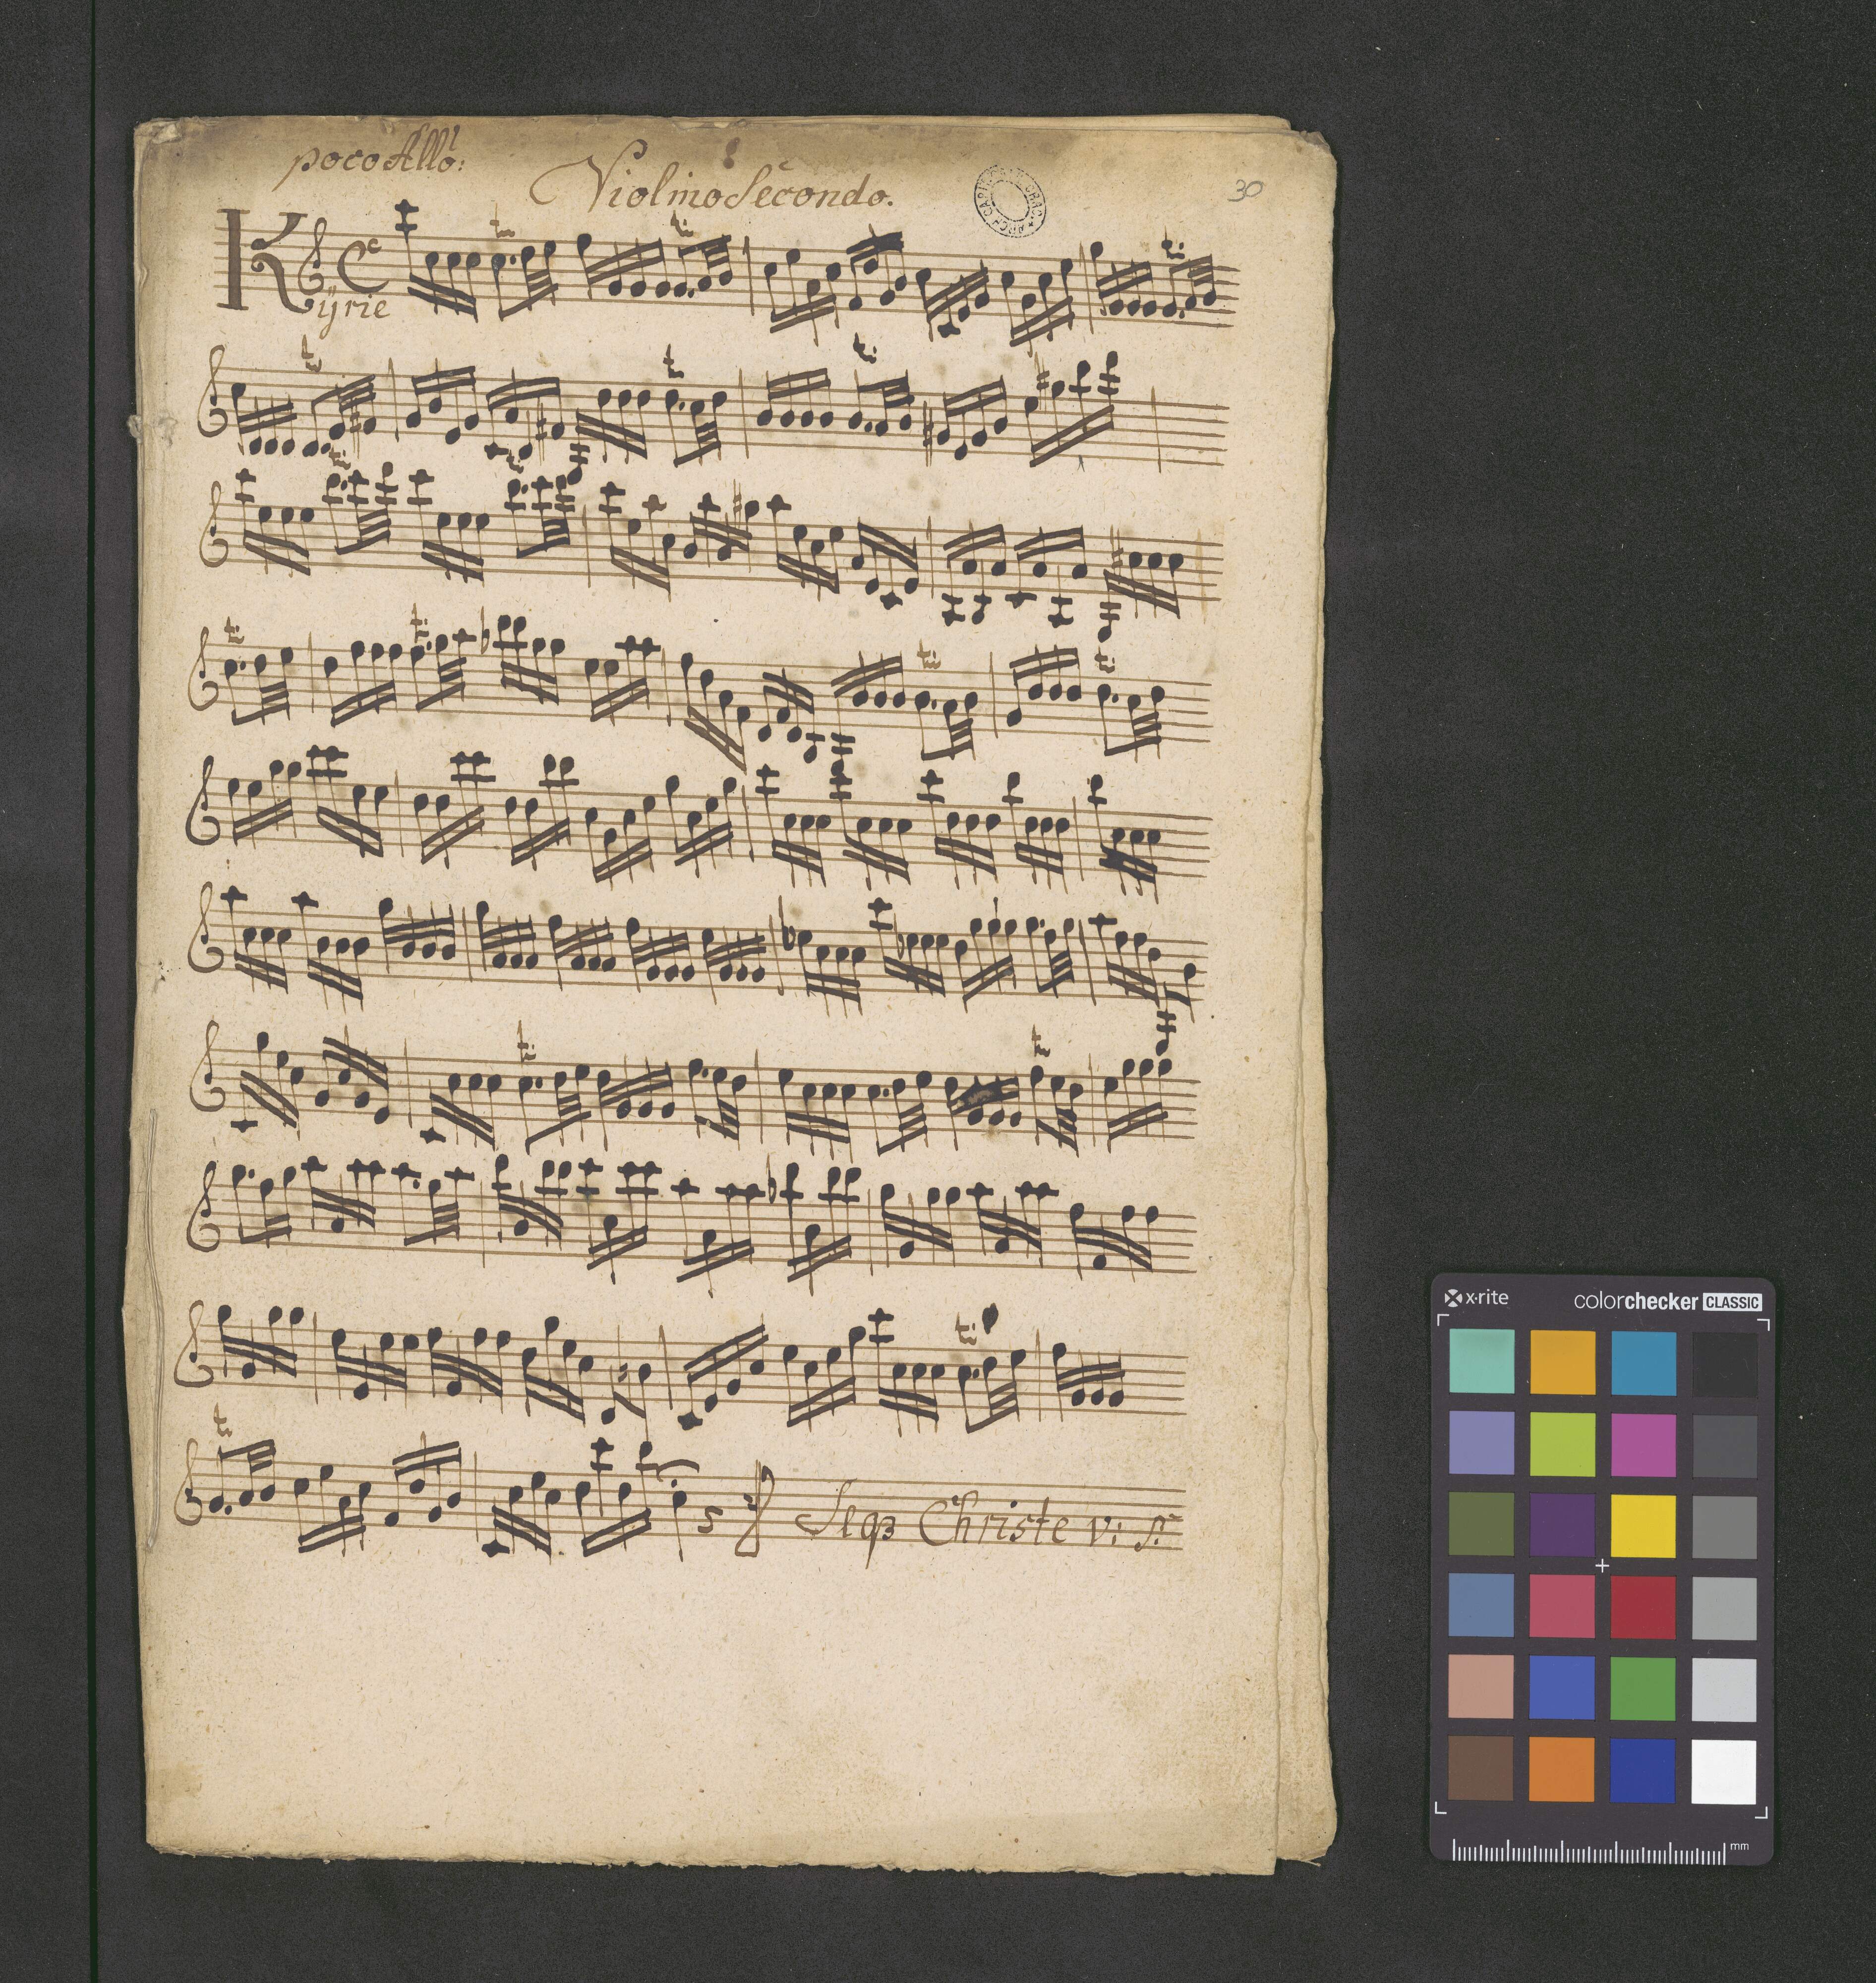 poco Allo:
Violino Secondo.
30
Kÿrie
Seqʒ Christe v: s:
x·rite
colorchecker CLASSIC
mm